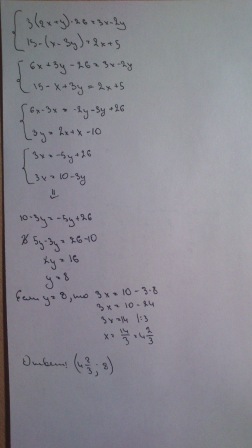 3(2x+y)-26=3x-2y
15-(x-3y)=2x+5
6x+3y-26=3x-2y
15-x+3y=2x+5
6x-3x=-2y-3y+26
3y=2x+x-10
3x=-5y+26
3x=10-3y
⇓
10-3y=-5y+26
5y-3y=26-10
2y=16
y=8
Если y=8, то 3x=10-3·8
3x=10-24
3x=14 |:3
x=14/3=4 2/3
Ответ: (4 2/3; 8)